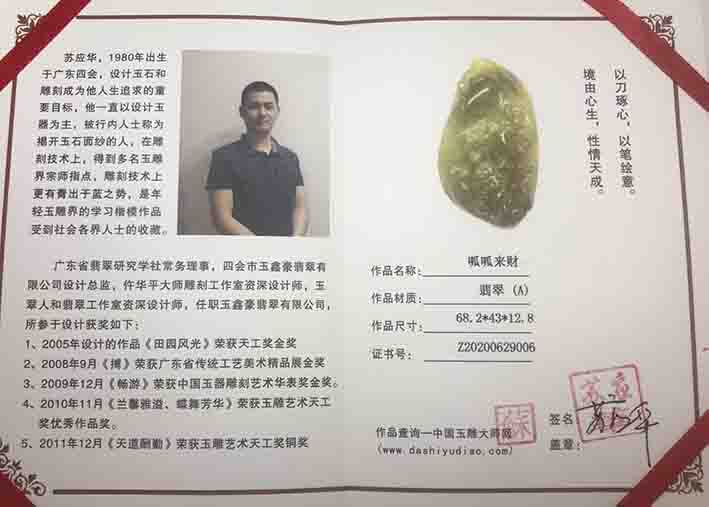 苏应华，1980年出生
于广东四会，设计玉石和
雕刻成为他人生追求的重
要目标，他一直以设计玉
器为主，被行内人士称为
揭开玉石面纱的人，在雕
刻技术上，得到多名玉雕
界宗师指点，雕刻技术上
更有青出于蓝之势，是年
轻玉雕界的学习楷模作品
受到社会各界人士的收藏。
广东省翡翠研究学社常务理事，四会市玉鑫豪翡翠有
限公司设计总监，仵华平大师雕刻工作室资深设计师，玉
翠人和翡翠工作室资深设计师，任职玉鑫豪翡翠有限公司，
所参与设计获奖如下：
1、2005年设计的作品《田园风光》荣获天工奖金奖
2、2008年9月《搏》荣获广东省传统工艺美术精品展金奖
3、2009年12月《畅游》荣获中国玉器雕刻艺术华表奖金奖。
4、2010年11月《兰馨雅溢、蝶舞芳华》荣获玉雕艺术天工
奖优秀作品奖。
5、2011年12月《天道酬勤》荣获玉雕艺术天工奖铜奖
以刀琢心，以笔绘意。
境由心生，性情天成。
作品名称：呱呱来财
作品材质：翡翠（A）
作品尺寸：68.2*43*12.8
证书号：Z20200629006
作品查询一中国玉雕大师网
(www.dashiyudiao.com)
签名
盖章：
蘇